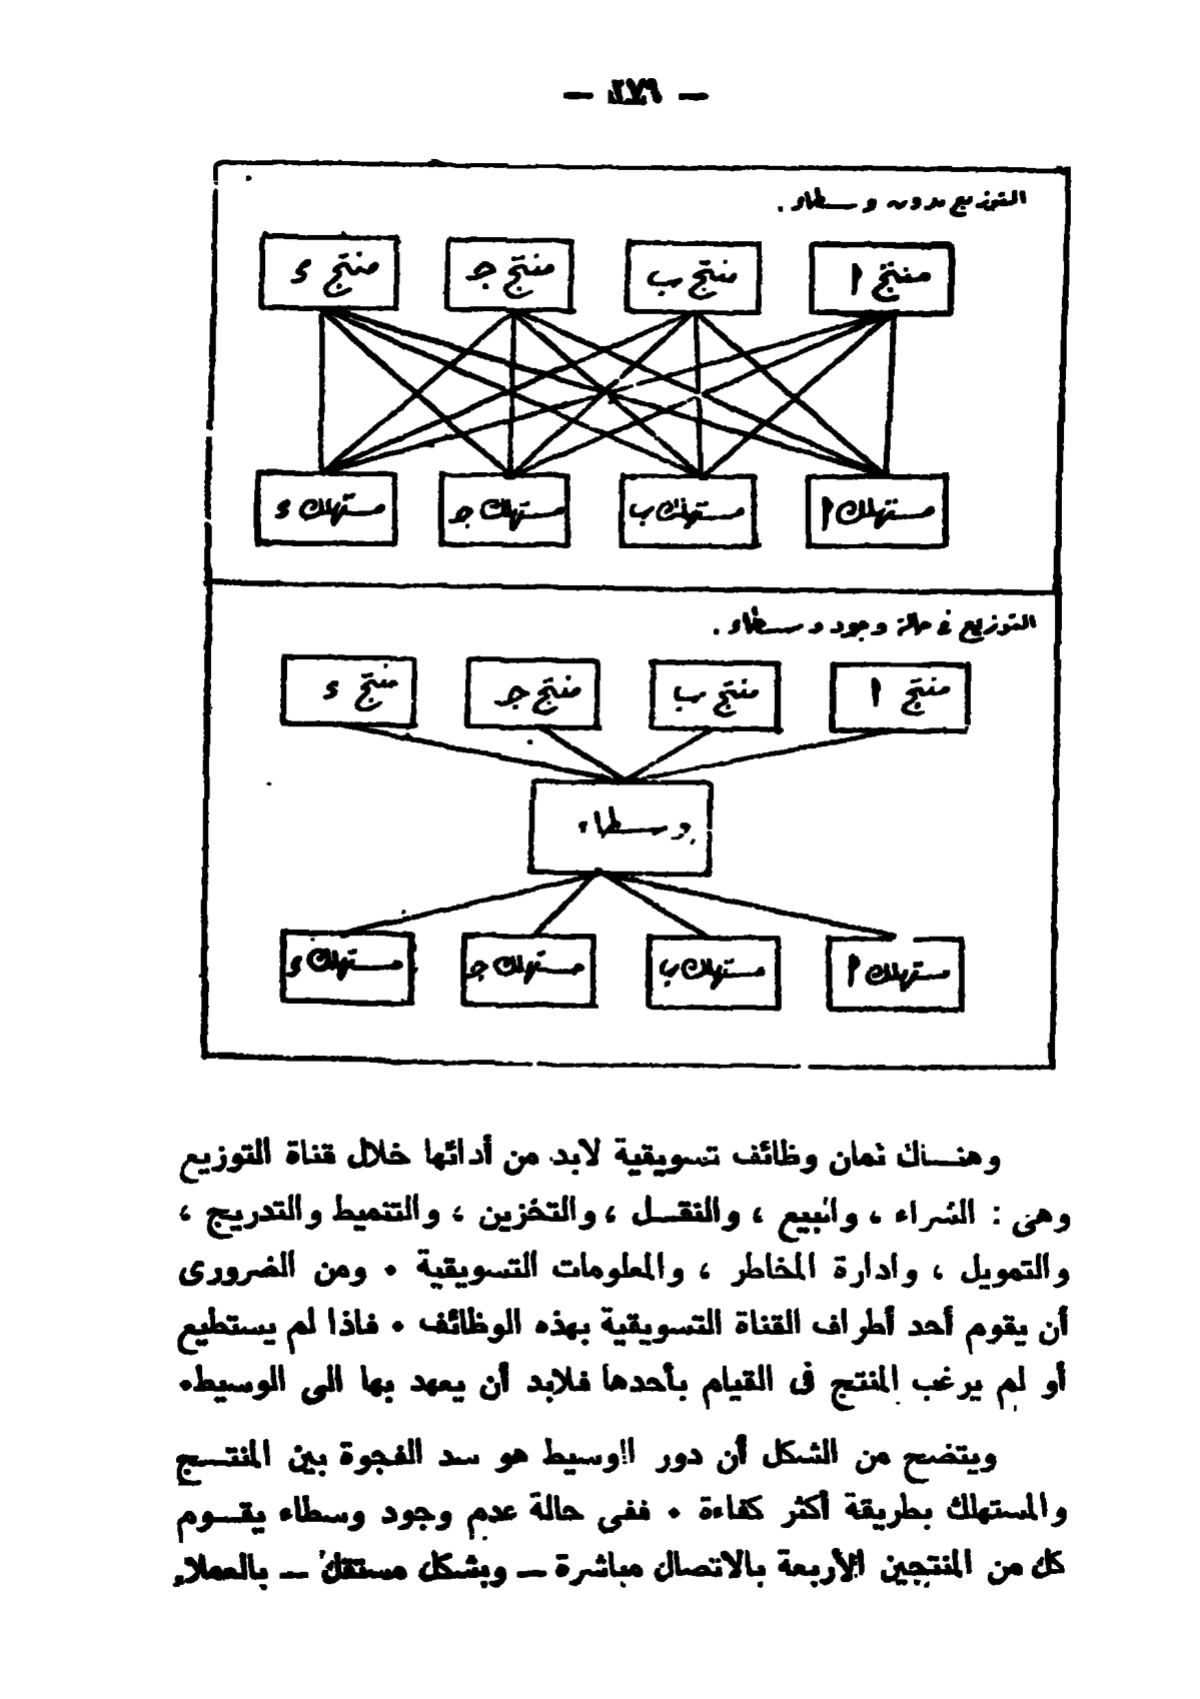 — ٢٧٩ —
التوزيع بدون وسطاء .
منتج ا
منتج ب
منتج جـ
منتج د
مستهلك ا
مستهلك ب
مستهلك جـ
مستهلك د
التوزيع فى حالة وجود وسطاء .
منتج ا
منتج ب
منتج جـ
منتج د
وسطاء
مستهلك ا
مستهلك ب
مستهلك جـ
مستهلك د
وهنــاك ثمان وظائف تسويقية لابد من أدائها خلال قناة التوزيع
وهى : الشراء ، والبيع ، والنقــل ، والتخزين ، والتنميط والتدريج ،
والتمويل ، وادارة المخاطر ، والمعلومات التسويقية ٠ ومن الضرورى
أن يقوم أحد أطراف القناة التسويقية بهذه الوظائف ٠ فاذا لم يستطيع
أو لم يرغب المنتج فى القيام بأحدها فلابد أن يعهد بها الى الوسيط٠
ويتضح من الشكل أن دور الوسيط هو سد الفجوة بين المنتــج
والمستهلك بطريقة أكثر كفاءة ٠ ففى حالة عدم وجود وسطاء يقــوم
كل من المنتجين الأربعة بالاتصال مباشرة — وبشكل مستقل — بالعملاء